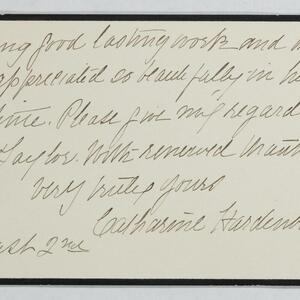 ng good lasting work and
appreciated so beautifully in h
time. Please give my regard
Taylor. With renewed thank
very truly yours
Catharine Harden
st 2nd